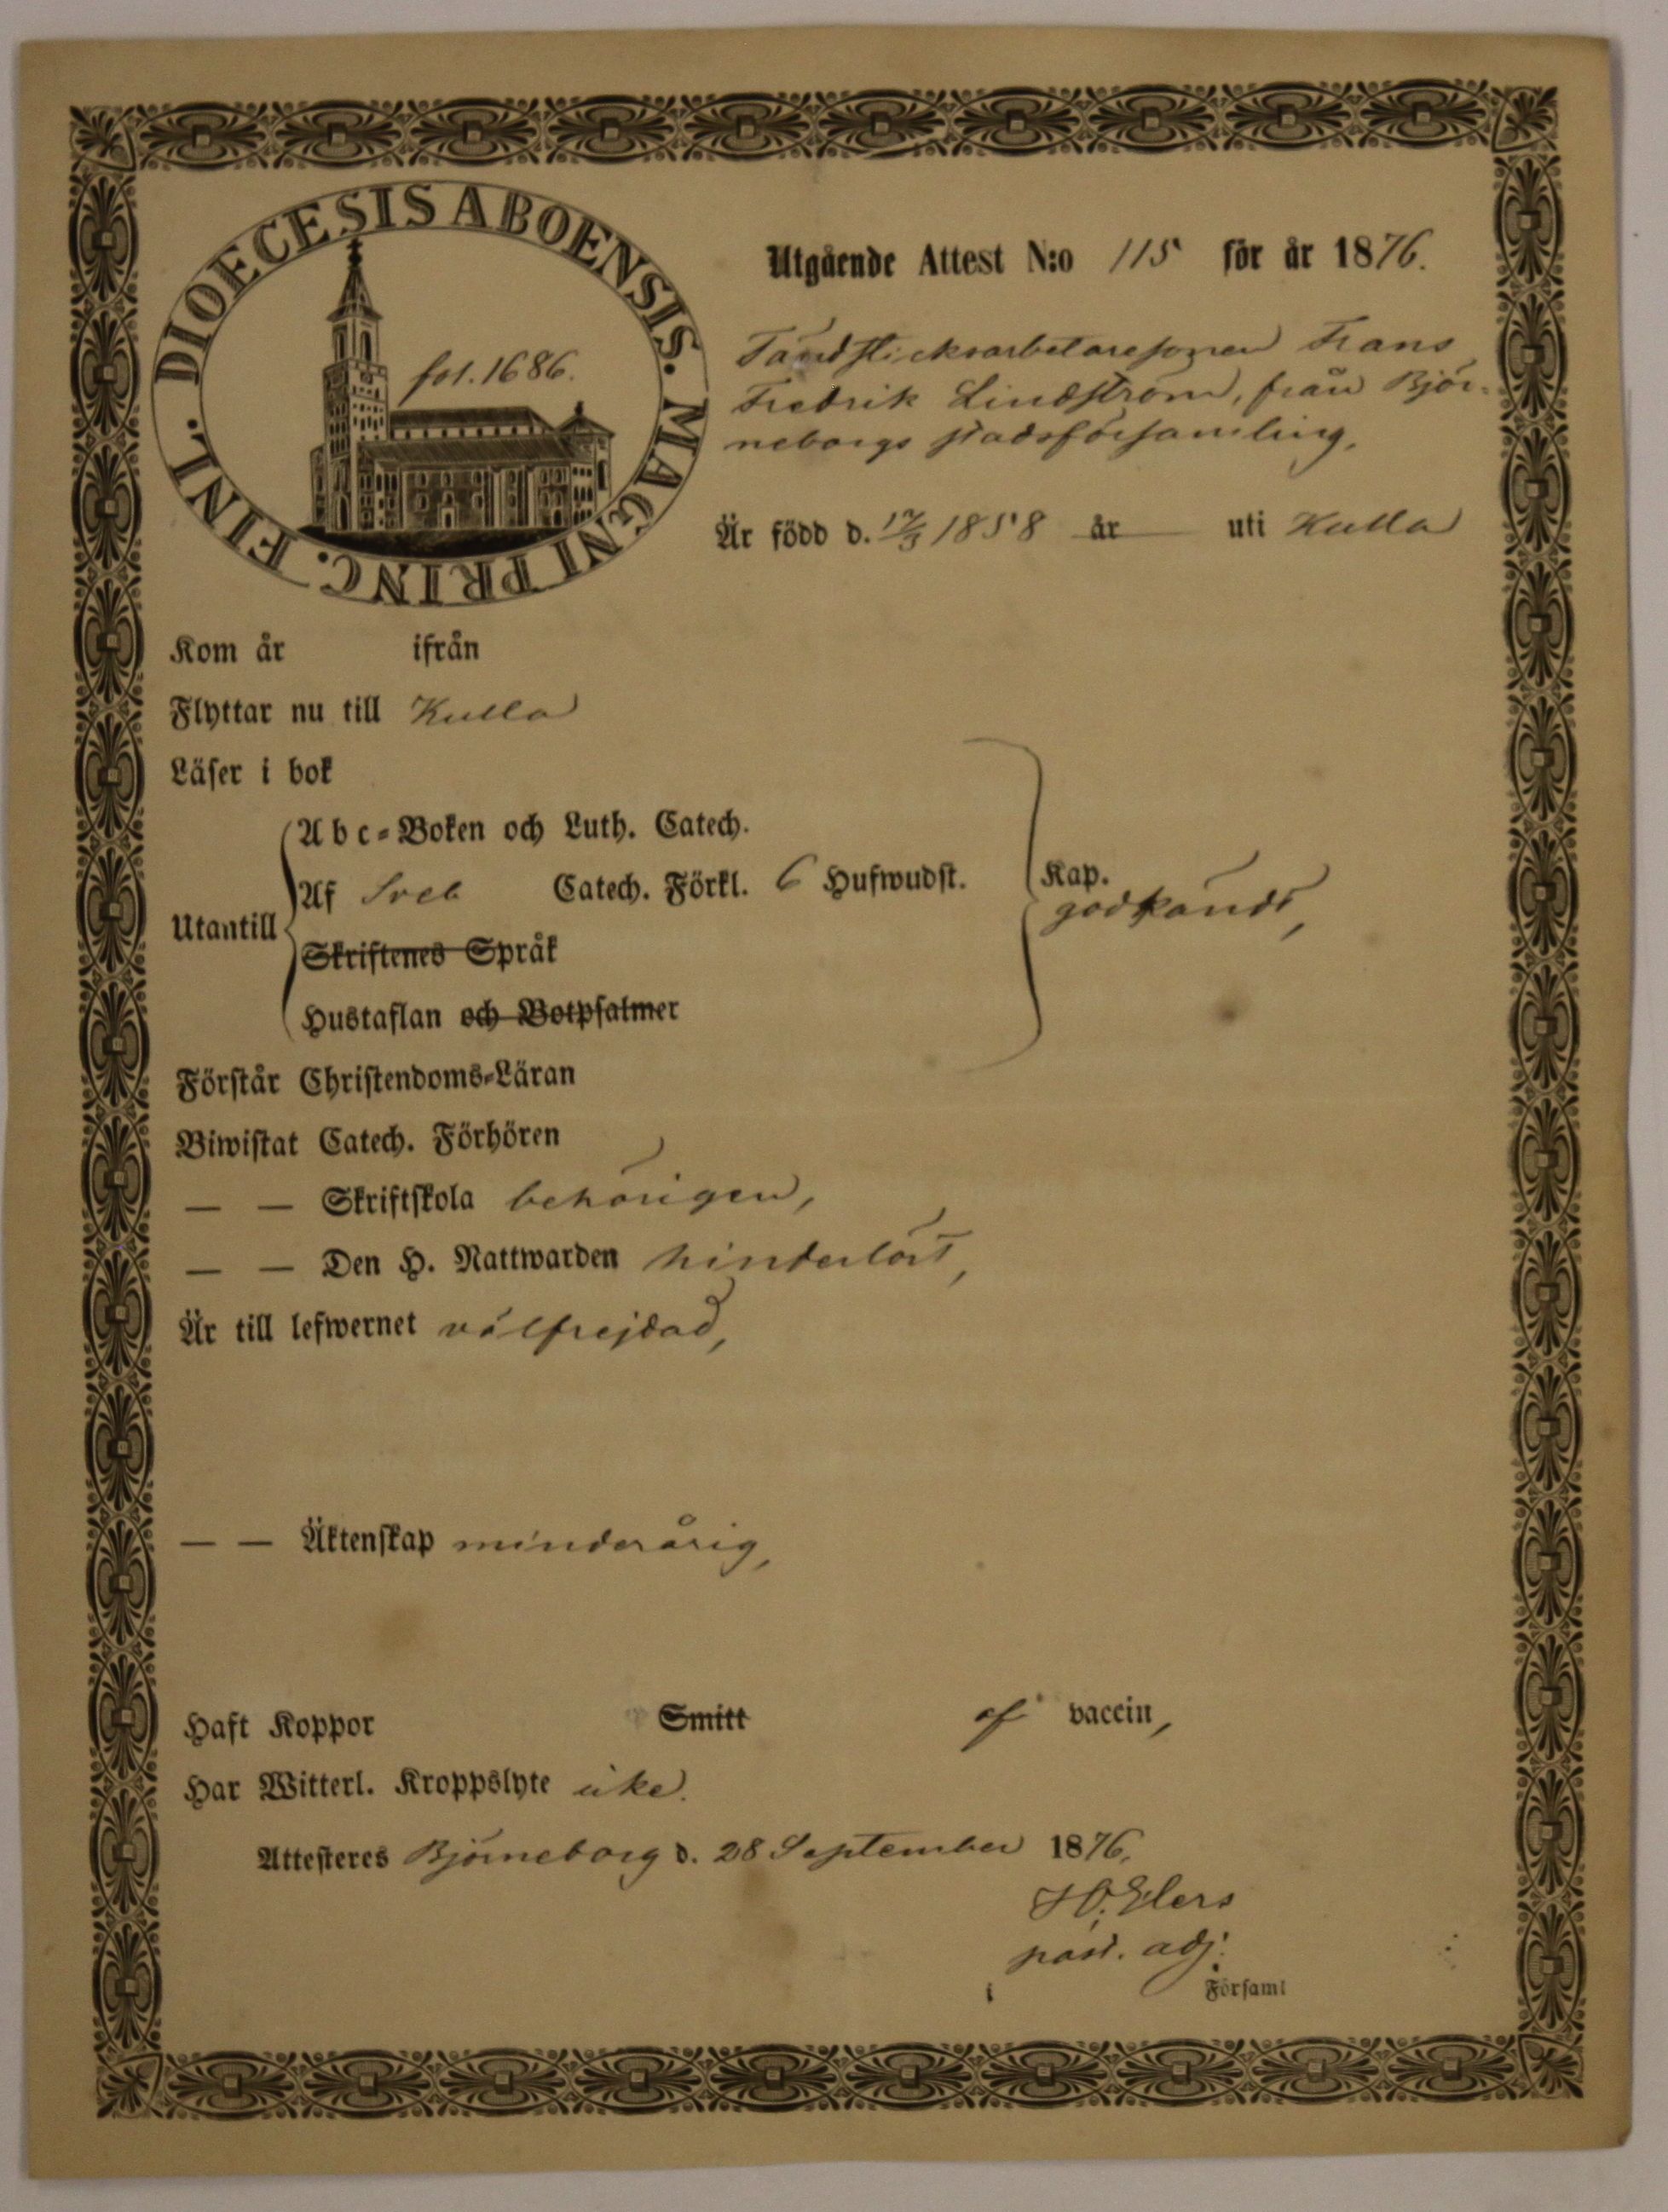 DIOECESIS ABOENSIS. MAGNI PRINC. FINL.
fol. 1686.
Utgående Attest N:o 115 för år 1876.
Tändsticksarbetaresonen Frans
Fredrik Lindström, från Björ-
neborgs stadsförsamling,
Är född d. 17/3 1858 år uti Kulla
Kom år ifrån
Flyttar nu till Kulla
Läser i bok
Abc-Boken och Luth. Catech.
Af Sveb Catech. Förkl. 6 Hufwudst.
Kap.
godkändt,
Utantill
Skriftenes Språk
Hustaflan och Botpsalmer
Förstår Christendoms-Läran
Biwistat Catech. Förhören
— — Skriftskola behörigen,
— — Den H. Nattwarden hinderlöst,
Är till lefwernet välfrejdad,
— — Äktenskap minderårig,
Haft Koppor Smitt af vaccin,
Har Witterl. Kroppslyte icke.
Attesteres Björneborg d. 28 September 1876,
past. adj.
i Församl